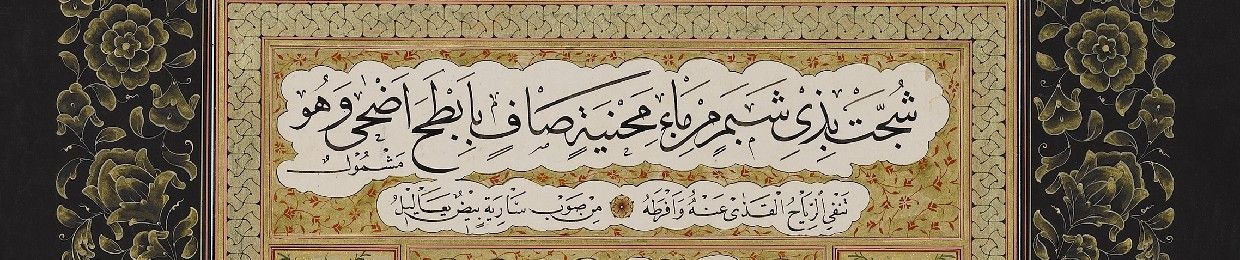 شُجَّتْ بِذِي شَبَمٍ مِنْ مَاءِ مَحْنِيَةٍ صَافٍ بِأَبْطَحَ أَضْحَى وَهُوَ
مَشْمُولُ
تَنْفِي الرِّيَاحُ الْقَذَى عَنْهُ وَأَفْرَطَهُ مِنْ صَوْبِ سَارِيَةٍ بِيضٌ يَعَالِيلُ